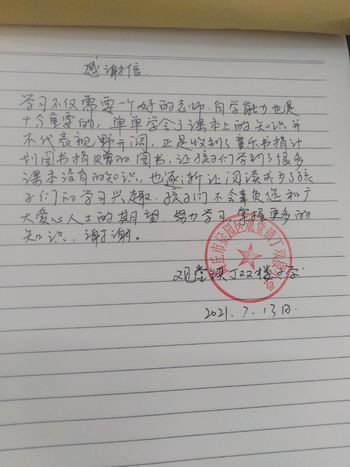 感谢信
学习不仅需要一个好的老师，自学能力也是
十分重要的，单单学会了课本上的知识并
不代表视野开阔，正是收到了童乐书捐计
划图书捐赠的图书，让孩子们学到了很多
课本没有的知识，也逐渐让阅读成了孩
子们的学习兴趣，孩子们不会辜负您和广
大爱心人士的期望，努力学习，掌握更多的
知识，谢谢。
观堂镇丁双楼小学
2021.7.13日